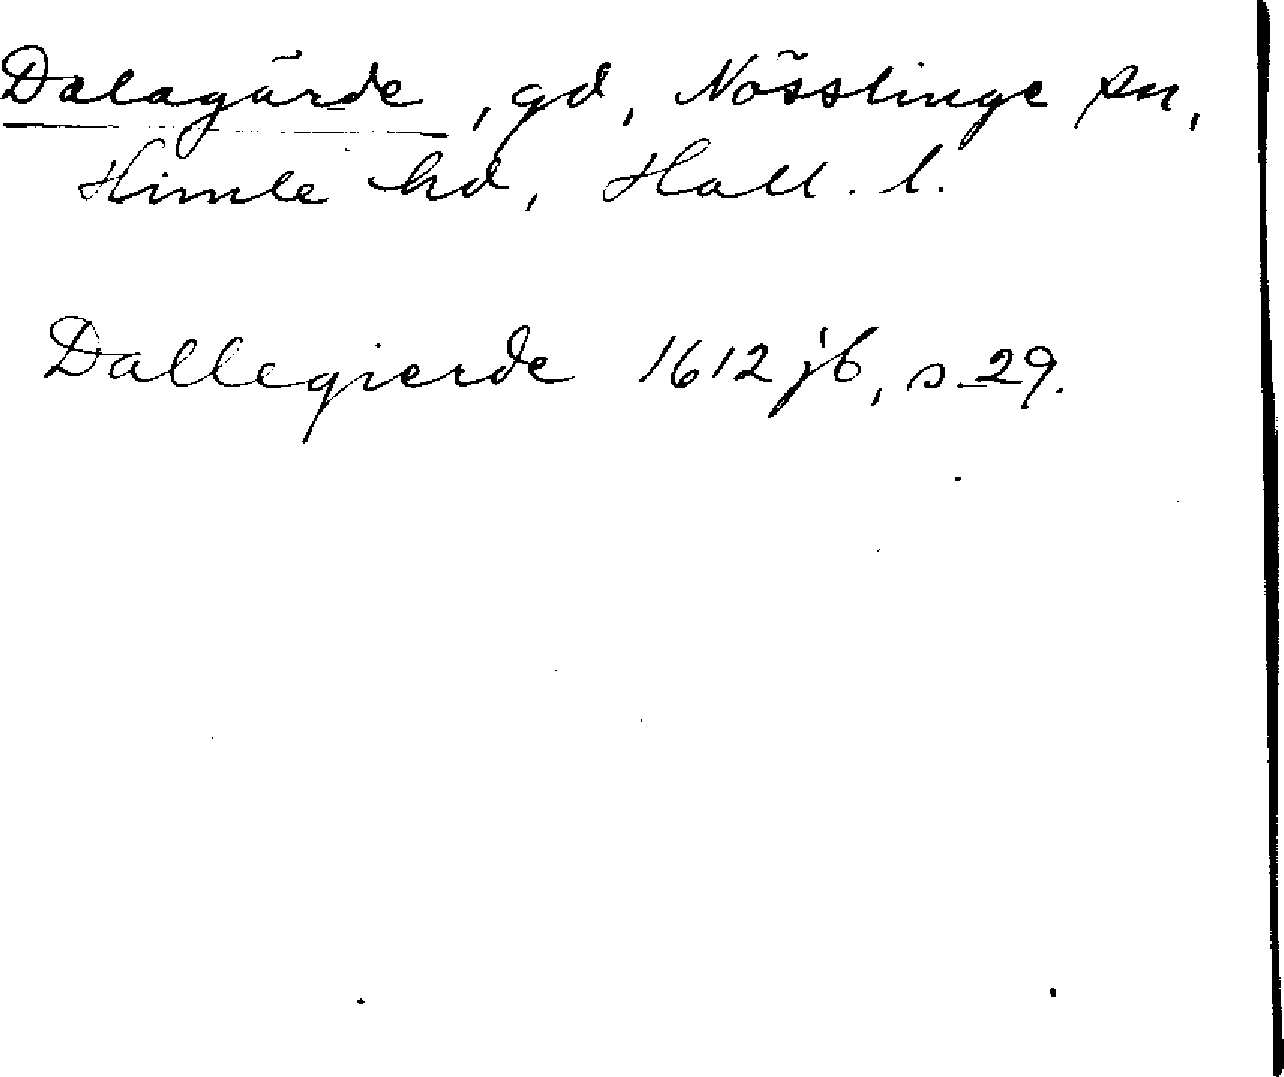 Dalagärde, gd, Nösslinge sn,
Himle hd, Hall. l.
Dallegierde 1612 jb, s. 29.